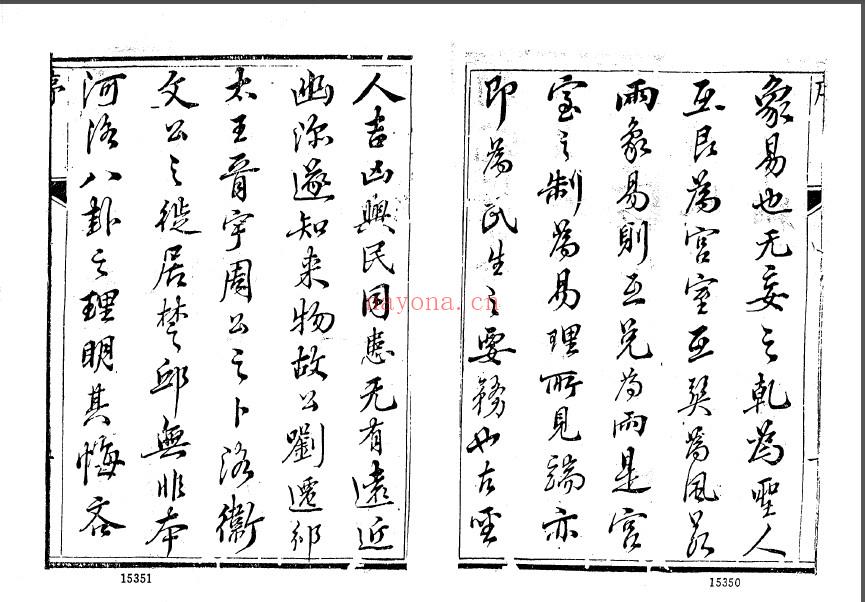 象易也无妄之乾為聖人
互艮為宮室互巽為風若
兩象易則互兌為雨是宮
室之制為易理所見端亦
即為民生之要務也古聖
15350
人吉凶與民同患无有遠近
幽深遂知来物故公劉遷邠
太王胥宇周公之卜洛衛
文公之徙居楚邱無非本
河洛八卦之理明其悔吝
15351
nayona.cn